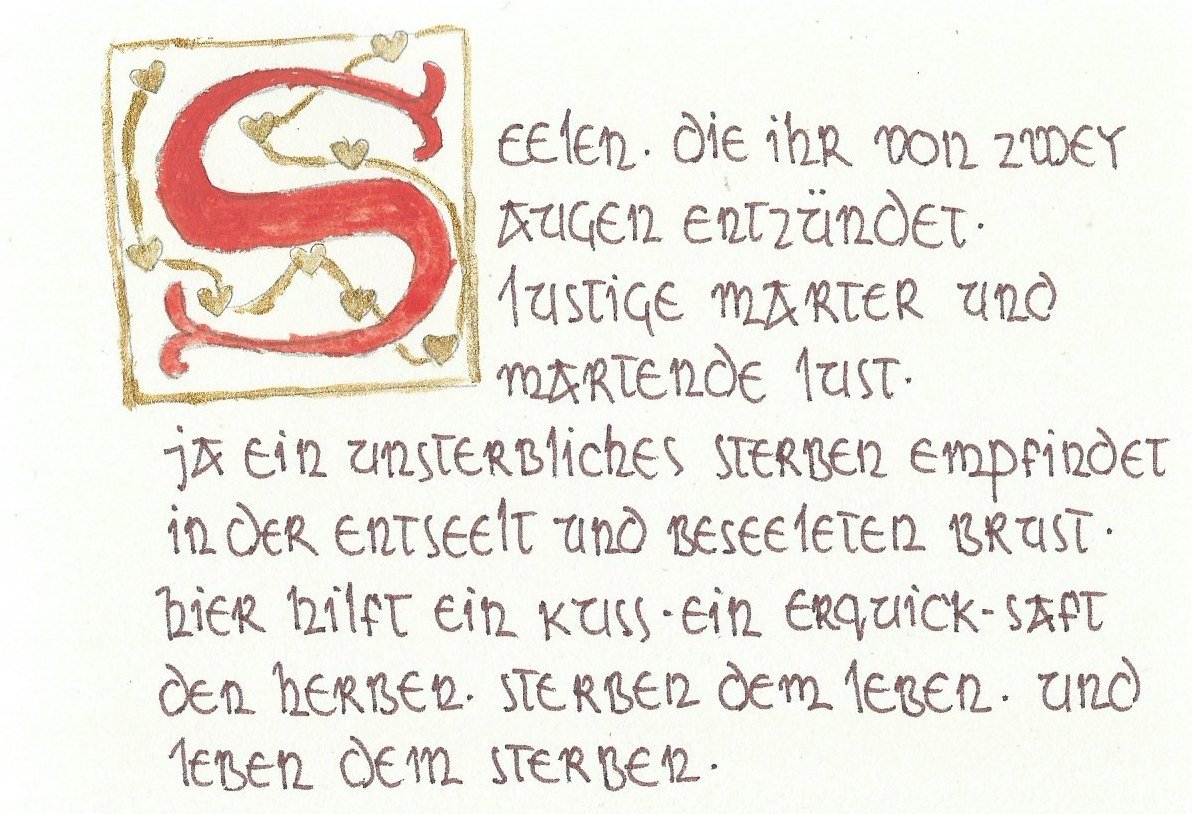 Seelen. die ihr von zwey
augen entzündet.
lustige marter und
martende lust.
ja ein unsterbliches sterben empfindet
in der entseelt und beseeleten brust.
hier hilft ein kuss. ein erquick-saft
den herben. sterben dem leben. und
leben dem sterben.